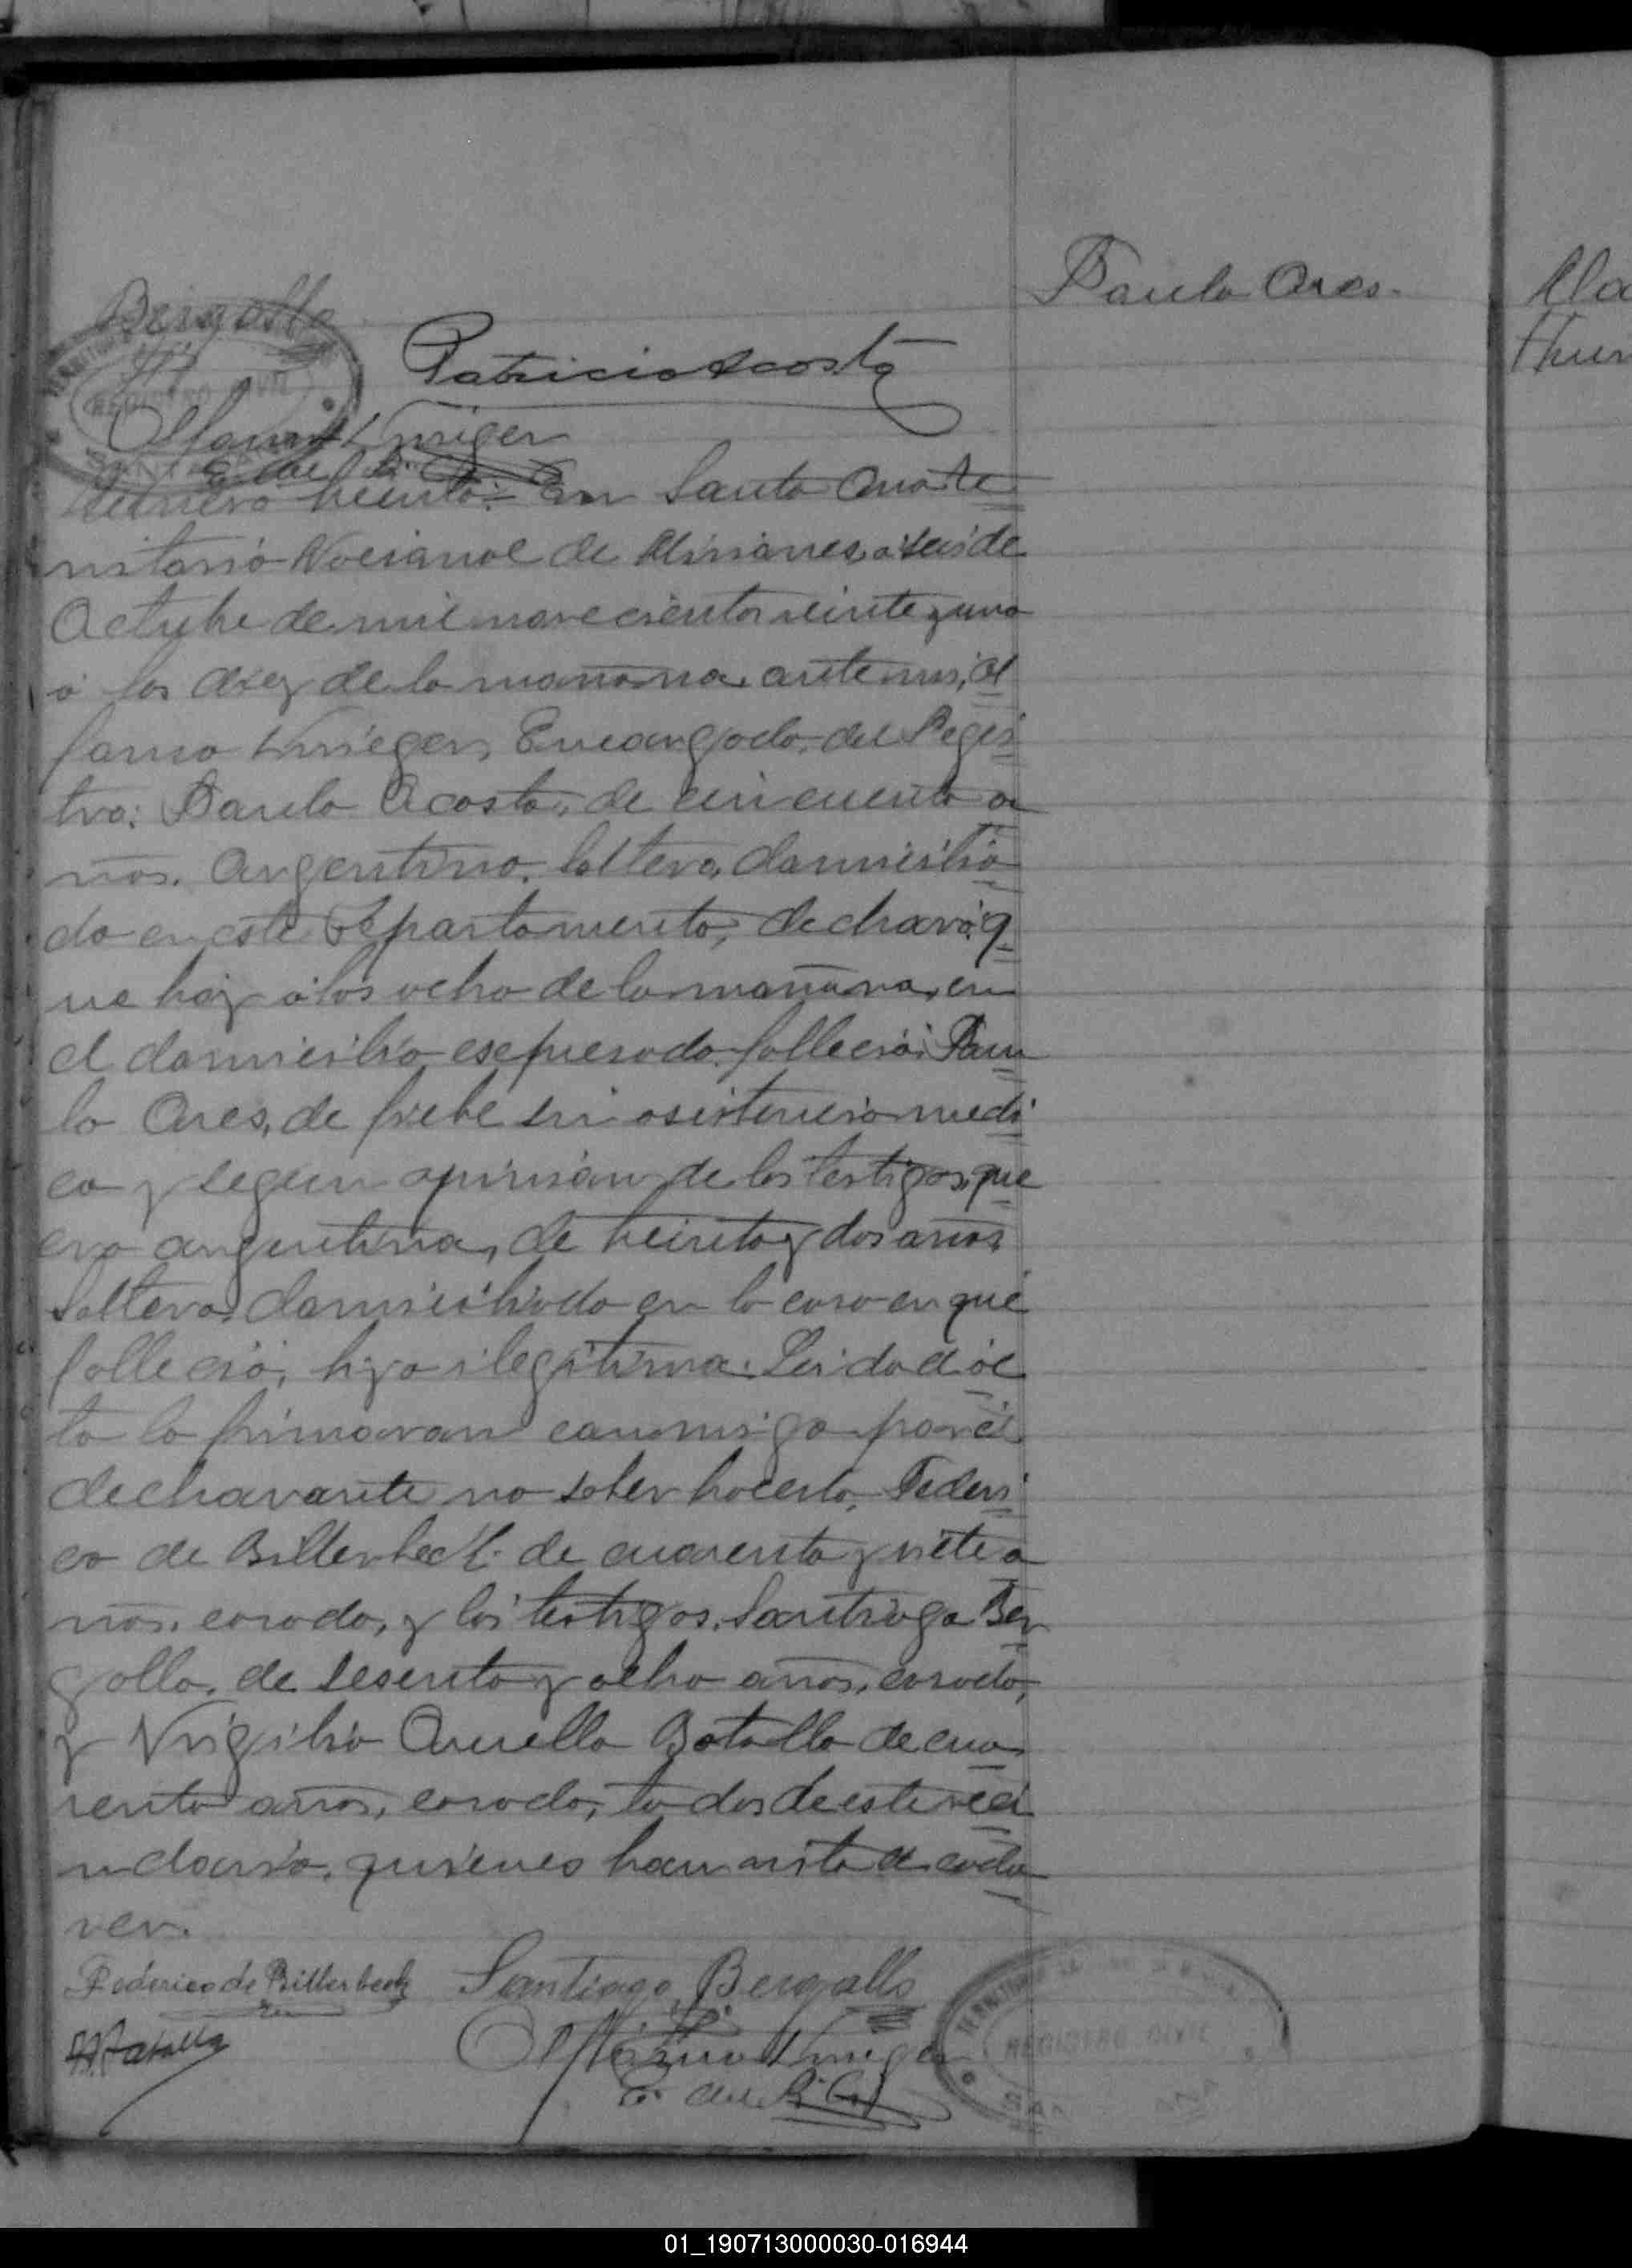 Paula Ares.
Bergallo
Patricio Acosta
REGISTRO CIVIL
Olfanio Krieger
E. del R. C.
Número treinta: En Santa Ana te
rritorio Nacional de Misiones, a seis de
Octubre de mil novecientos veinte y uno
a las diez de la mañana, ante mi, Ol
fanio Krieger, Encargado del Regis
tro: Paulo Acosta, de cincuenta a
ños, Argentino, soltero, domicilia
do en este Departamento, declaró: q
ue hoy a las ocho de la mañana, en
el domicilio espresado falleció: Pau
la Ares, de fiebre sin asistencia medi
ca y segun opinion de los testigos, que
era argentina, de treinta y dos años
Soltera, domiciliada en la casa en que
falleció, hija ilegítima. Leida el ac
ta la firmaran conmigo por el
declarante no saber hacerlo, Federi
co de Bitterbeck de cuarenta y siete a
ños, casado, y los testigos, Santiago Ber
gallo, de sesenta y ocho años, casado,
y Virgilio Batalla de cua
renta años, casado, todos de este veci
ndario, quienes han visto el cada
ver.
Federico de Bitterbeck Santiago Bergallo
Batalla
Olfanio Krieger
E. del R. C.
REGISTRO CIVIL
01_190713000030-016944